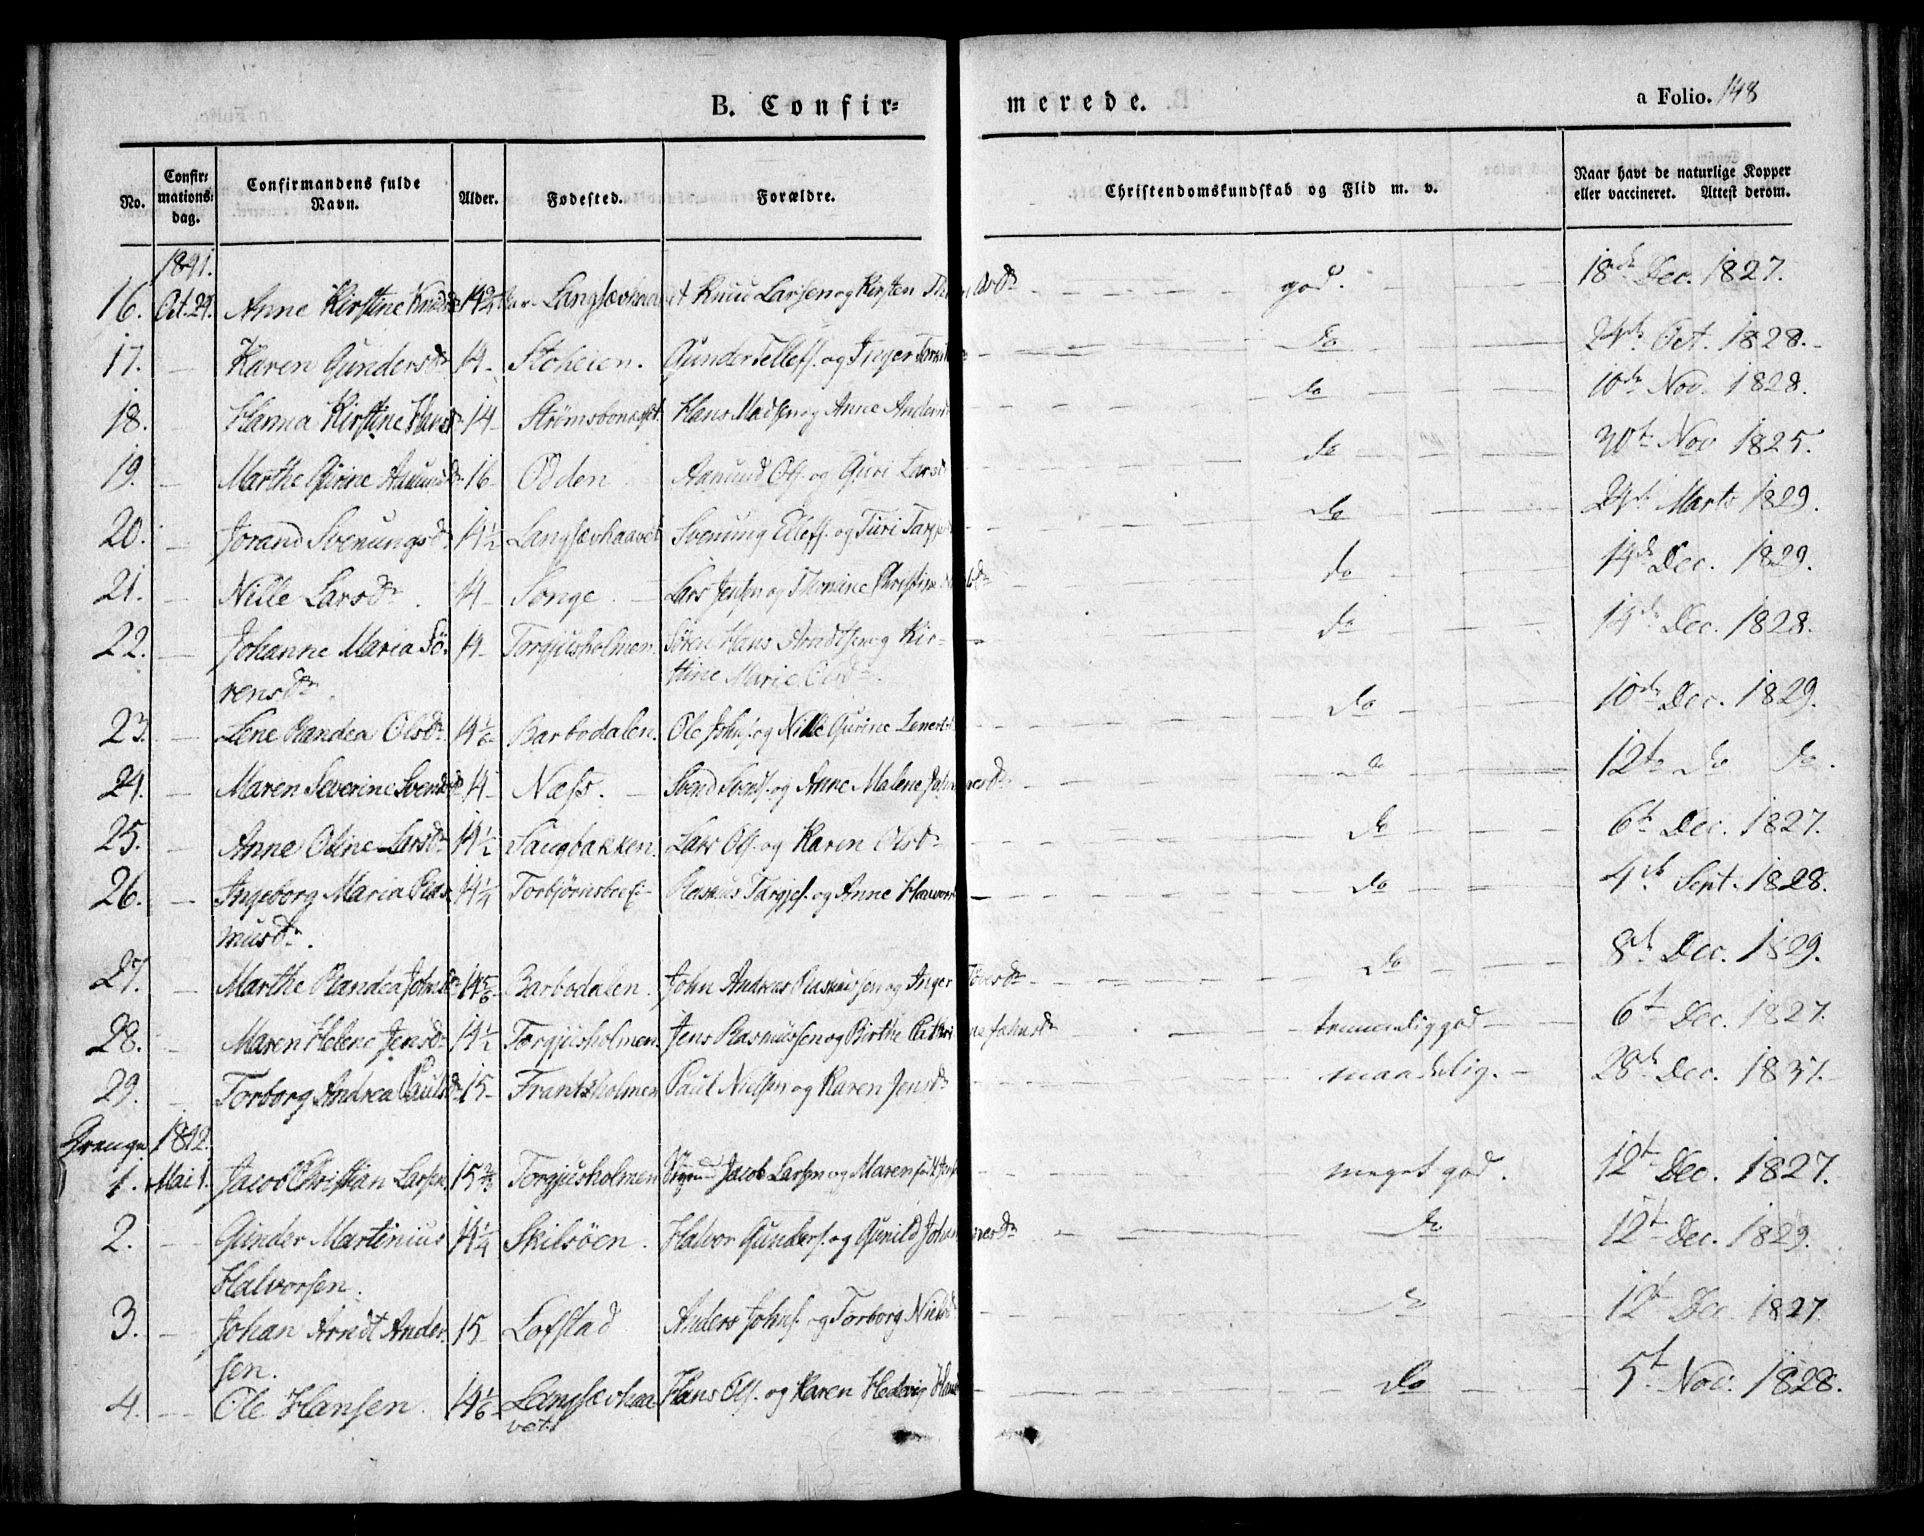 B. Confir=
merede.
a Folio. 148
No.
Confir=
mations=
dag.
Confirmandens fulde
Navn.
Alder.
Fødested.
Forældre.
Christendomskundskab og Flid m. v.
Naar havt de naturlige Kopper
eller vaccineret. Attest derom.
1841.
16. Oct. 24. Anne Kirstine Langsævhaavet Knud Larsen og Kirsten god. 18de Dec. 1827.
17. — Karen Gundersdr 14 - Stoheien. Gunder Tellefs. og Inger do 24de Oct. 1828.
18. Hanna Kirstine Hansdr 14 - Hans Madsen og Anne Anders do 10de Nov. 1828.
19. — Marthe Gurine Aanundsdr 16 - Odden Aanund Ols. og Guri Larsd do 30te Nov 1825.
20. — Jorand Svenungsdr 14 1/2 Langsævhaavet Svenung Ellefs. og Turi Targjs do 24de Marts 1829.
21. — Nille Larsdr. 14 - Songe. — Lars Jensen og Thomine Christine do 14de Dec. 1829.
22. — Johanne Maria Sö- 14 - Torgjusholmen. Sören Hans Arndtsen og Kir- do 14de Dec. 1828.
rensdr. stine Marie Olsdr.
23. — Lene Randea Olsdr. 14 1/6 Barbodalen. Ole Johns. og Nille Gurine do 10de Dec. 1829.
24. — Maren Severine Svendsd 14 - Næss. — Svend Svends. og Anne Malene do 12te do do.
25. — Anne Oline Larsdr 14 1/2 Saugbakken. Lars Ols. og Karen Olsdr do 6te Dec. 1827.
26. — Ingeborg Maria Ras- 14 1/4 Rasmus Targjes. og Anne Halvors do 4de Sept. 1828.
musdr.
27. — Marthe Randea Johnsdr 14 5/6 Barbodalen. John Andreas Rasmussen og Inger do 8de Dec. 1829.
28. — Maren Helene Jensdr 14 1/2 Torgjusholmen. Jens Rasmussen og Birthe Cathrine Johnsdr temmelig god — 6te Dec. 1827.
29. — Torborg Andrea Paulsdr 15 - Frantsholmen Paul Nielsen og Karen Jensdr maadelig. — 28de Dec. 1837.
Drenge 1842.
1. Mai 1. Jacob Christian Larsen. 15 Torgjusholmen Jacob Larsen og Maren meget god. 12te Dec. 1827.
2. — Gunder Martinius 14 1/4 Skilsöen. Halvor Gunders. og Gunild do 12te Dec. 1829.
Halvorsen.
3. — Johan Arndt Ander- 15 - Lofstad Anders Johns. og Torborg Nielsdr do 12te Dec. 1827.
sen.
4. — Ole Hansen. 14 1/6 Langsævhaa- Hans Ols. og Karen Hedevig do 5te Nov. 1828.
vet.